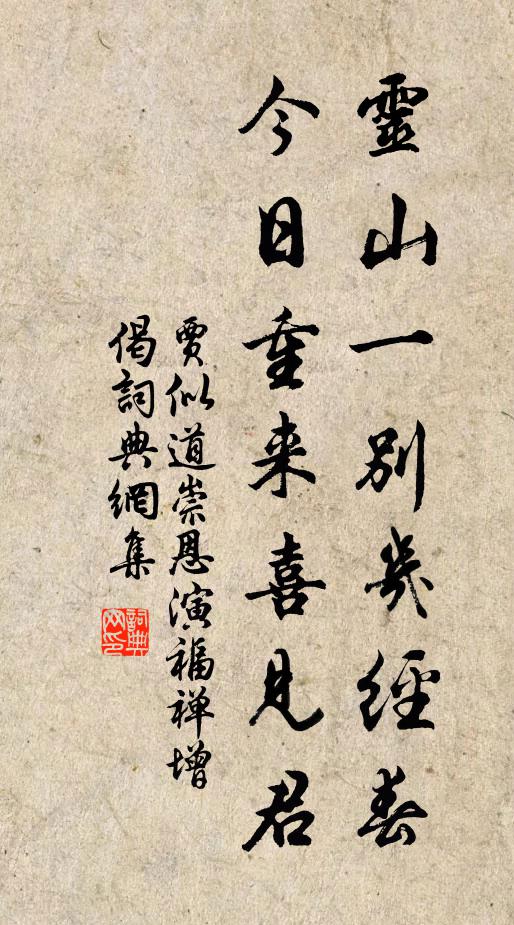 靈山一別幾經春
今日重来喜見君
賈似道崇恩演福禅增
偈詞典網集
詞典
网印